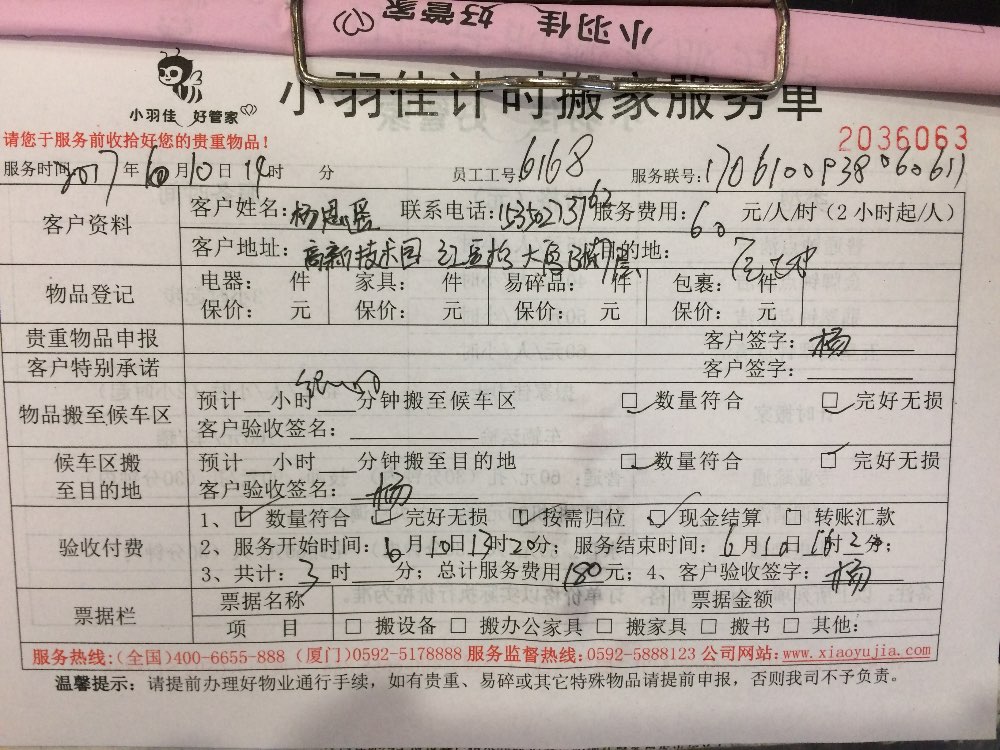 小羽佳 好管家
小羽佳 好管家
小羽佳计时搬家服务单
请您于服务前收拾好您的贵重物品！
2036063
服务时间 2017年6月10日14时 分 员工工号:6168 服务联号:
客户资料
客户姓名: 联系电话: 服务费用:60元/人/时（2小时起/人）
客户地址:高新技术园 目的地:
物品登记
电器： 件 家具： 件 易碎品： 件 包裹： 件
保价： 元 保价： 元 保价： 元 保价： 元
贵重物品申报 客户签字:杨
客户特别承诺 客户签字:
物品搬至候车区
预计 小时 分钟搬至候车区 □数量符合 □完好无损
客户验收签名:
候车区搬至目的地
预计 小时 分钟搬至目的地 □数量符合 □完好无损
客户验收签名:杨
验收付费
1、□数量符合 □完好无损 □按需归位 □现金结算 □转账汇款
2、服务开始时间:6月10日13时20分；服务结束时间:6月10日16时2分；
3、共计:3时 分；总计服务费用180元；4、客户验收签字:杨
票据栏
票据名称 票据金额
项 目 □搬设备 □搬办公家具 □搬家具 □搬书 □其他:
服务热线:(全国)400-6655-888 (厦门)0592-5178888 服务监督热线:0592-5888123 公司网站:www.xiaoyujia.com
温馨提示：请提前办理好物业通行手续，如有贵重、易碎或其它特殊物品请提前申报，否则我司不予负责。